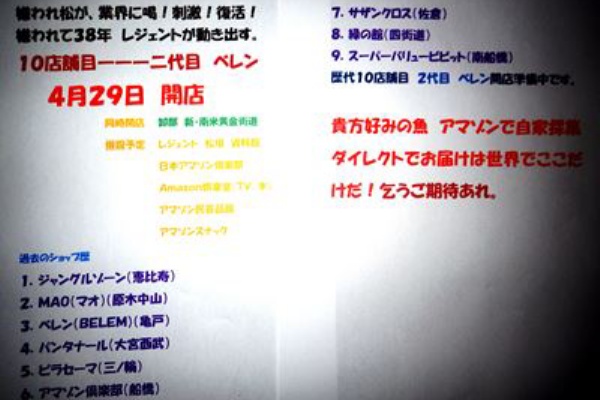 嫌われ松が、業界に喝！刺激！復活！
嫌われて38年 レジェントが動き出す。
10店舗目ーーー二代目 ベレン
4月29日 開店
同時開店 卸部 新・南米黄金街道
施設予定 レジェント 松坂 資料館
日本アマゾン倶楽部
Amazon倶楽部 TV
アマゾン民芸品店
アマゾンスナック
過去のショップ歴
1. ジャングルゾーン(恵比寿)
2. MAO(マオ)(原木中山)
3. ベレン(BELEM)(亀戸)
4. パンタナール(大宮西武)
5. ピラセーマ(三ノ輪)
6. アマゾン倶楽部(船橋)
7. サザンクロス(佐倉)
8. 緑の館(四街道)
9. スーパーバリュービビット(南船橋)
歴代10店舗目 2代目 ベレン開店準備中です。
貴方好みの魚 アマゾンで自家採集
ダイレクトでお届けは世界でここだ
けだ！乞うご期待あれ。